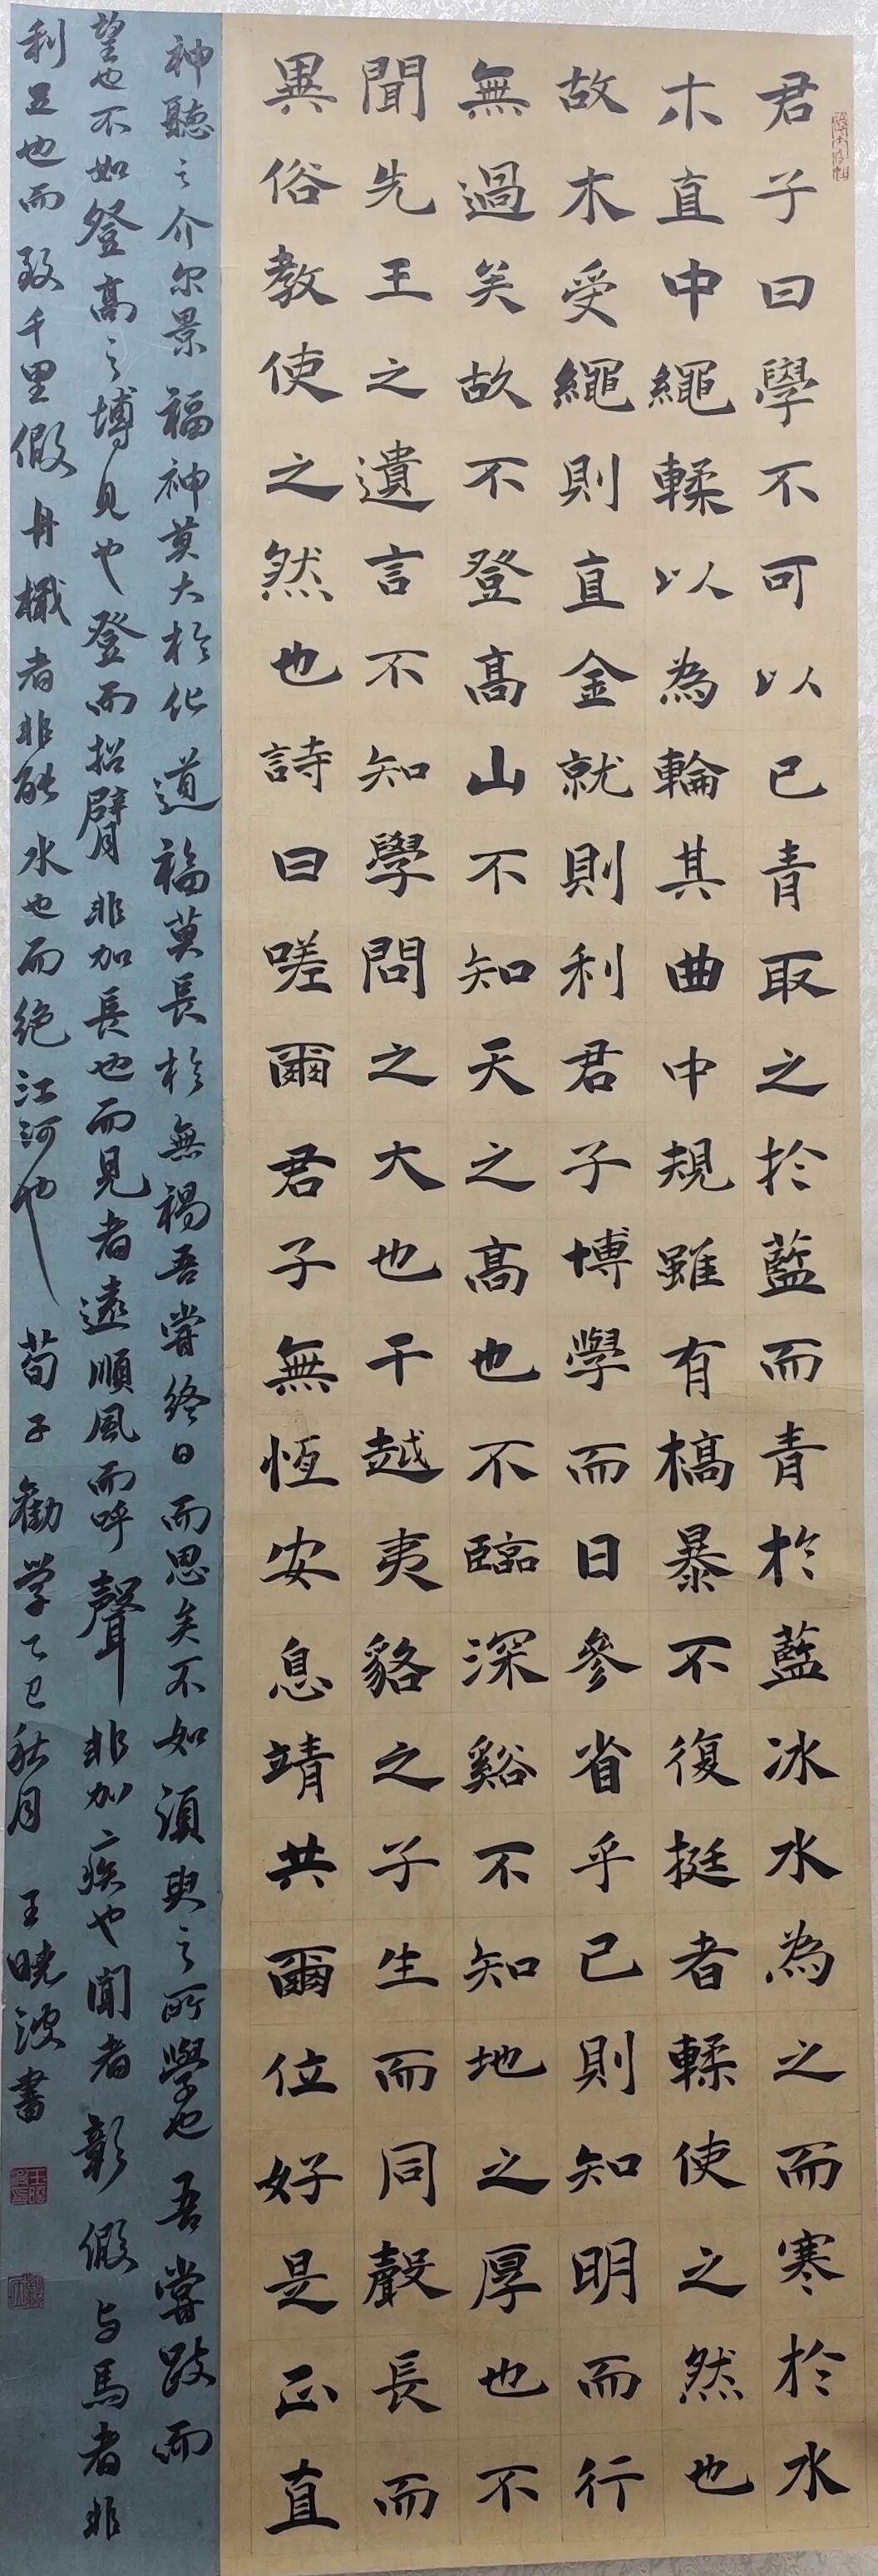 君子曰學不可以已青取之於藍而青於藍冰水為之而寒於水
木直中繩輮以為輪其曲中規雖有槁暴不復挺者輮使之然也
故木受繩則直金就則利君子博學而日參省乎己則知明而行
無過矣故不登高山不知天之高也不臨深谿不知地之厚也不
聞先王之遺言不知學問之大也干越夷貉之子生而同聲長而
異俗教使之然也詩曰嗟爾君子無恆安息靖共爾位好是正直
神聽之介尔景福神莫大於化道福莫長於無禍吾嘗終日而思矣不如須臾之所學也吾嘗跂而
望也不如登高之博見也登而招臂非加長也而見者遠順風而呼聲非加疾也聞者彰假与馬者非
利足也而致千里假舟檝者非能水也而绝江河也 荀子勸学乙巳秋月 王曉波書